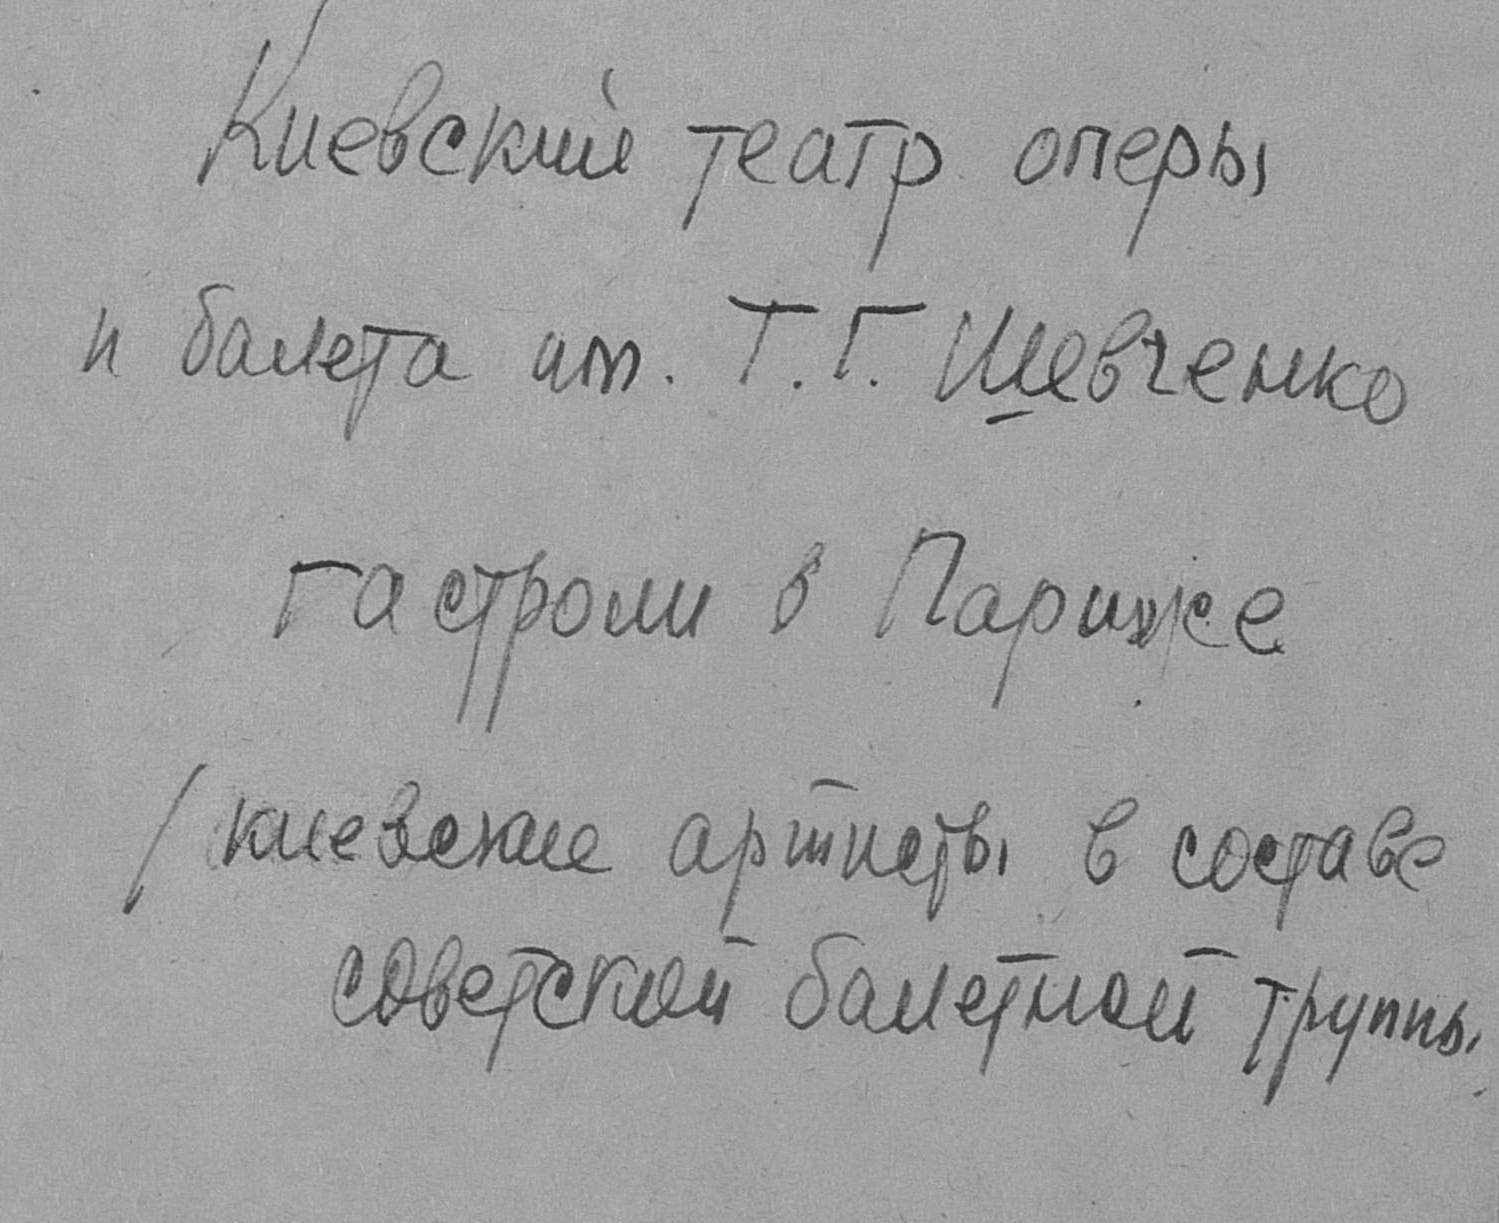 Киевский театр оперы
и балета им. Т.Г. Шевченко
гастроли в Париже
/ киевские артисты в составе
советской балетной труппы